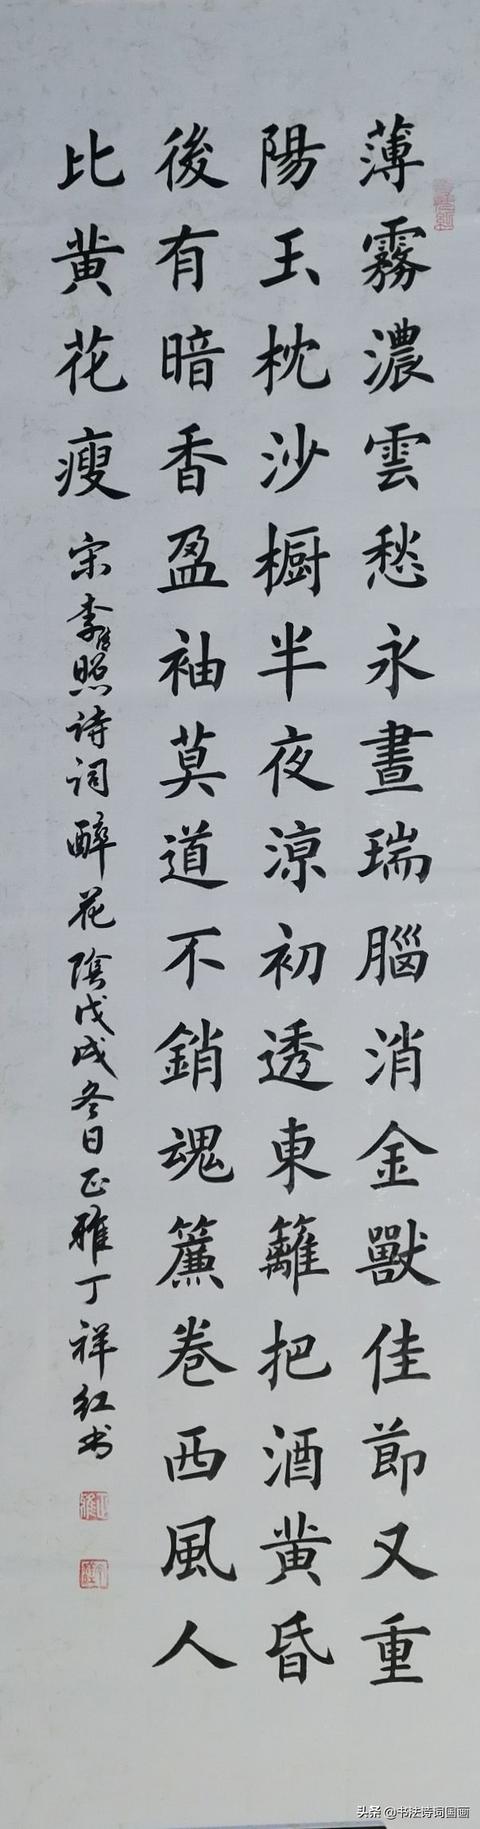 薄霧濃雲愁永晝瑞腦消金獸佳節又重
陽玉枕沙橱半夜涼初透東籬把酒黄昏
後有暗香盈袖莫道不銷魂簾卷西風人
比黄花瘦
宋李清照诗词醉花陰戊戌冬日正雅丁祥红书
头条 @书法诗词国画